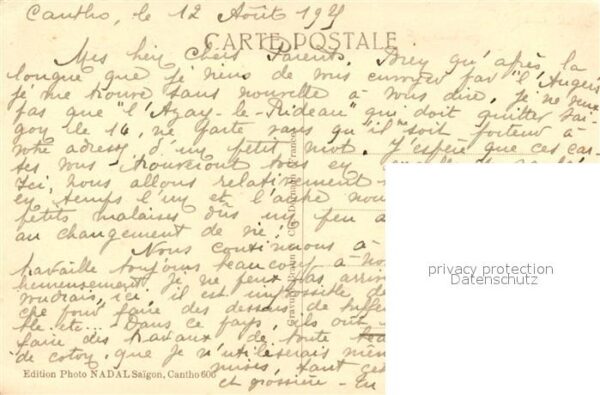 Cantho, le 12 Août 1925
CARTE POSTALE
Mes bien chers Parents, Bien qu'après la
longue que je viens de vous envoyer par "l'Angers
je me trouve sans nouvelle à vous dire, je ne veux
pas que "l'Azay-le-Rideau" qui doit quitter Sai-
gon le 14, ne parte sans qu'"il" soit porteur à
votre adresse d'un petit mot. J'espère que ces car-
tes vous trouveront tous en
Ici, nous allons relativement
en temps l'un et l'autre nous
petits malaises dûs un peu a
au changement de vie.
Nous continuons à
travaille toujours beaucoup à
heureusement, je ne peux pas
voudrais, ici, il est impossible de
che pour faire des dessus de buffet
ble etc... Dans ce pays, ils ont
faire des travaux de toute
de coton, que je n'utiliserais mêm
mises, tant ces
et grossière - En
Gravure Braun & Cie
Edition Photo NADAL Saïgon, Cantho 606
privacy protection
Datenschutz